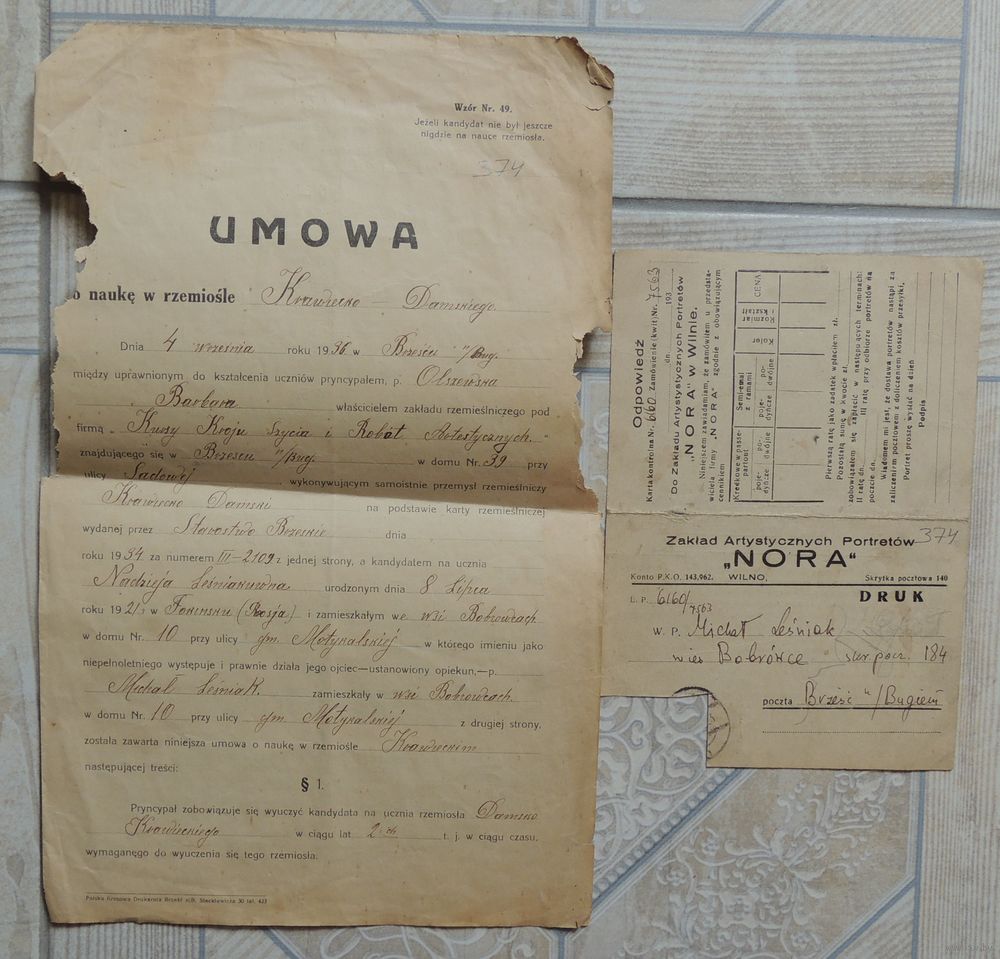 Wzór Nr. 49.
Jeżeli kandydat nie był jeszcze
nigdzie na nauce rzemiosła.
374
UMOWA
o naukę w rzemiośle Krawiecko Damskiego
Dnia 4 września roku 1936 w Brześciu n/Bug.
między uprawnionym do kształcenia uczniów pryncypałem, p. Olszewska
Barbara właścicielem zakładu rzemieślniczego pod
firmą „Kursy Kroju Szycia i Robót Artystycznych"
znajdującego się w Brześciu n/Bug. w domu Nr. 39 przy
ulicy Sadowej wykonywującym samoistnie przemysł rzemieślniczy
Krawiecko Damski na podstawie karty rzemieślniczej
wydanej przez Starostwo Brzeskie dnia
roku 1934 za numerem III-2109 z jednej strony, a kandydatem na ucznia
Nadzieja Leśniakówna urodzonym dnia 8 Lipca
roku 1921 w (Rosja) i zamieszkałym we wsi Bobrowcach
w domu Nr. 10 przy ulicy gm. Motykalskiej w którego imieniu jako
niepełnoletniego występuje i prawnie działa jego ojciec—ustanowiony opiekun,—p.
Michał Leśniak zamieszkały w wsi Bobrowcach
w domu Nr. 10 przy ulicy gm. Motykalskiej z drugiej strony,
została zawarta niniejsza umowa o naukę w rzemiośle Krawieckim
następującej treści:
§ 1.
Pryncypał zobowiązuje się wyuczyć kandydata na ucznia rzemiosła Damsko
Krawieckiego w ciągu lat 2-ch t. j. w ciągu czasu,
wymaganego do wyuczenia się tego rzemiosła.
Polska Kresowa Drukarnia Brześć n/B. Steckiewicza 30 tel. 423
Odpowiedź
Karta kontrolna Nr. 6160 Zamówienie (kwit) Nr. 7563
dn. 193
Do Zakładu Artystycznych Portretów
„NORA" w Wilnie.
Niniejszem zawiadamiam, że zamówiłem u przedsta-
wiciela firmy „NORA" zgodnie z obowiązującym
cennikiem
Kredkowe w passe-partout
Semi-emal z ramami
Kolor
Rozmiar i kształt
CENA
poje-dyńcze
po-dwójne
poje-dyńcze
po-dwójne
Pierwszą ratę jako zadatek wpłaciłem zł.
Pozostałą sumę w kwocie zł.
zobowiązałem się zapłacić w następujących terminach:
II ratę dn. III ratę przy odbiorze portretów na
poczcie dn.
Wiadomem mi jest, że dostawa portretów nastąpi za
zaliczeniem pocztowem z doliczeniem kosztów przesyłki,
Portret proszę wysłać na dzień
Podpis
Zakład Artystycznych Portretów 374
„NORA"
Konto P.K.O. 143,962. WILNO, Skrytka pocztowa 140
L. P. 6160/7563 DRUK
W. P. Michał Leśniak
wieś Bobrówce skr. pocz. 184
poczta Brześć n/Bugiem